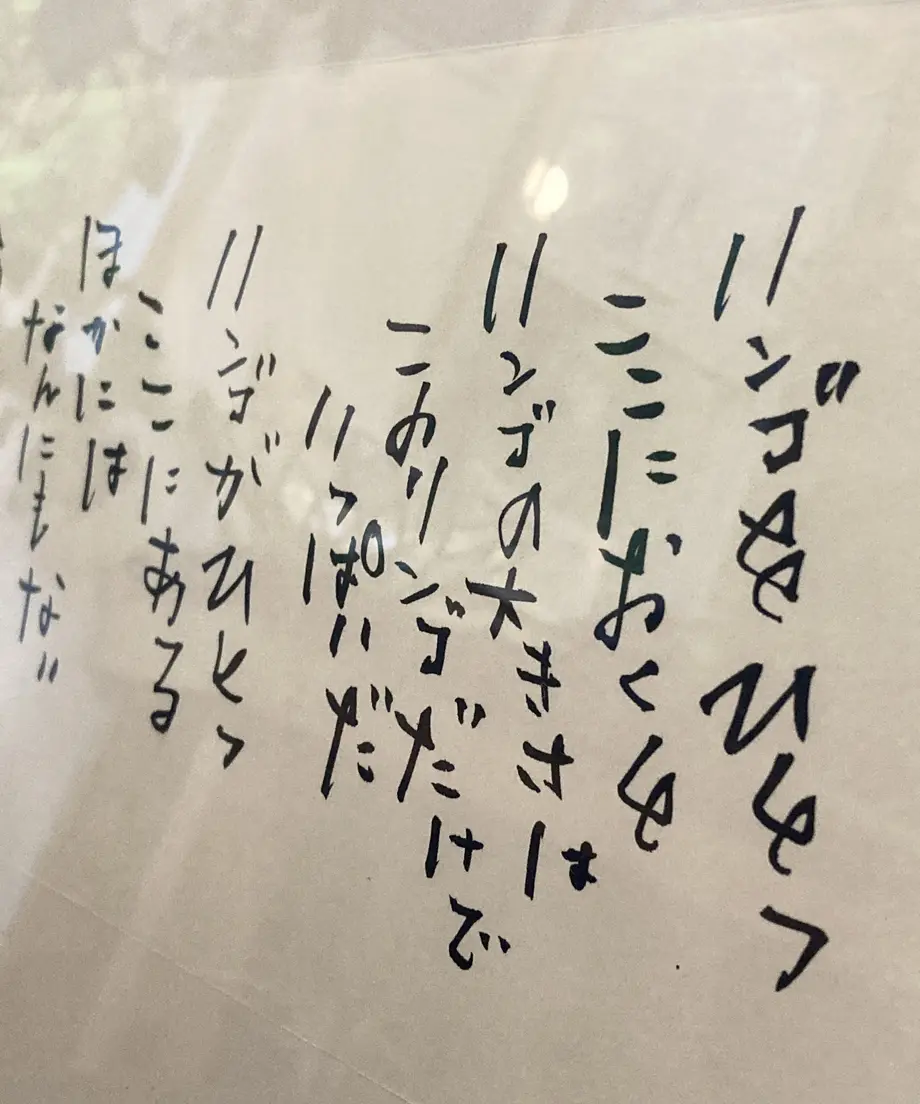 リンゴをひとつ
ここにおくと
リンゴの大きさは
このリンゴだけで
いっぱいだ
リンゴがひとつ
ここにある
ほかには
なんにもない